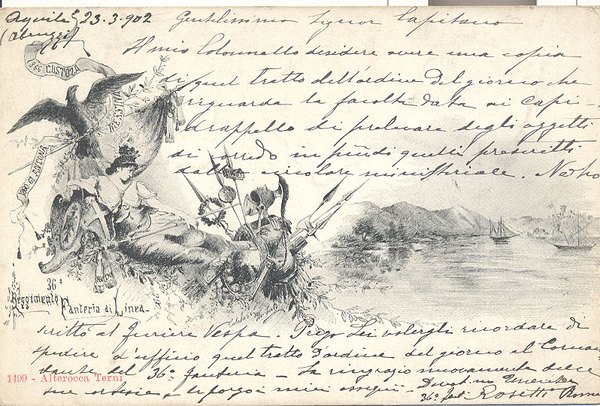 Aquila 23-3-902
(Abruzzi)
Gentilissimo Signor Capitano
Il mio Colonnello desidera avere una copia
di quel tratto dell'ordine del giorno che
riguarda la facoltà data ai capi-
drappello di prelevare degli oggetti
di corredo in più di quelli prescritti
dalla circolare ministeriale. Ne ho
1866 CUSTOZA
36º
Reggimento
Fanteria di Linea
scritto al furiere Vespa. Prego Lei volergli ricordare di
spedire d'ufficio quel tratto d'ordine del giorno al Coman-
dante del 36º fanteria - La ringrazio nuovamente delle
sue cortesie e le porgo i miei ossequi -
36º fant Rosetti
1499 - Alterocca Terni